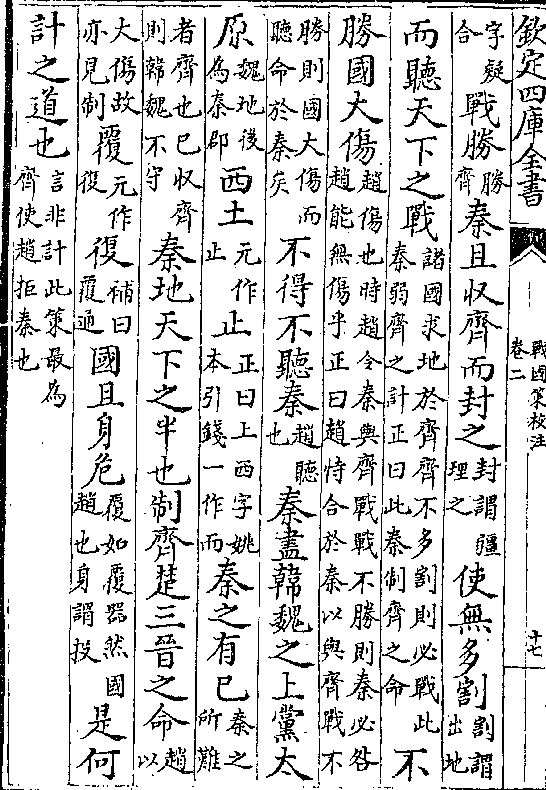 欽定四庫全書
戰國策校注
卷二
十七
字疑合戰勝勝齊秦且収齊而封之封謂疆理之使無多割割謂出地
而聽天下之戰諸國求地於齊齊不多割則必戰此秦弱齊之計正曰此秦制齊之命不
勝國大傷趙傷也時趙令秦與齊戰戰不勝則秦必咎趙能無傷乎正曰趙恃合於秦以與齊戰不
勝則國大傷而聽命於秦矣不得不聽秦趙聽也秦盡韓魏之上黨太
原魏地後為秦郡西土元作止止正曰上西字姚本引錢一作而秦之有已秦之所難
者齊也已収齊則韓魏不守秦地天下之半也制齊楚三晉之命趙以
大傷故亦見制覆元作復復補曰覆通國且身危覆如覆器然國趙也身謂投是何
計之道也言非計此策最為齊使趙拒秦也